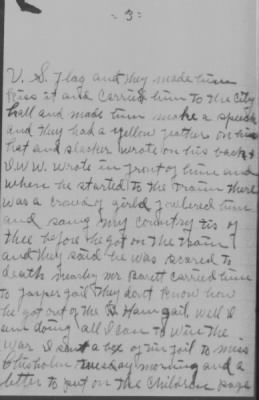 - 3 -
U. S. flag and they made him
kiss it and carried him to the City
hall and made him make a speach
and they had a yellow feather on his
hat and slacker wrote on his back &
I.W.W. wrote in front of him and
where he started to the train there
was a crowd of girls followed him
and sang my country tis of
thee before he got on the train
and they said he was scared to
death nearly Mr Barett carried him
to jasper jail they dont know how
he got out of the B. Ham jail. Well I
am doing all I can to win the
war I sent a box of tin foil to miss
Chisholm Tuesday morning and a
letter to put on the Children page